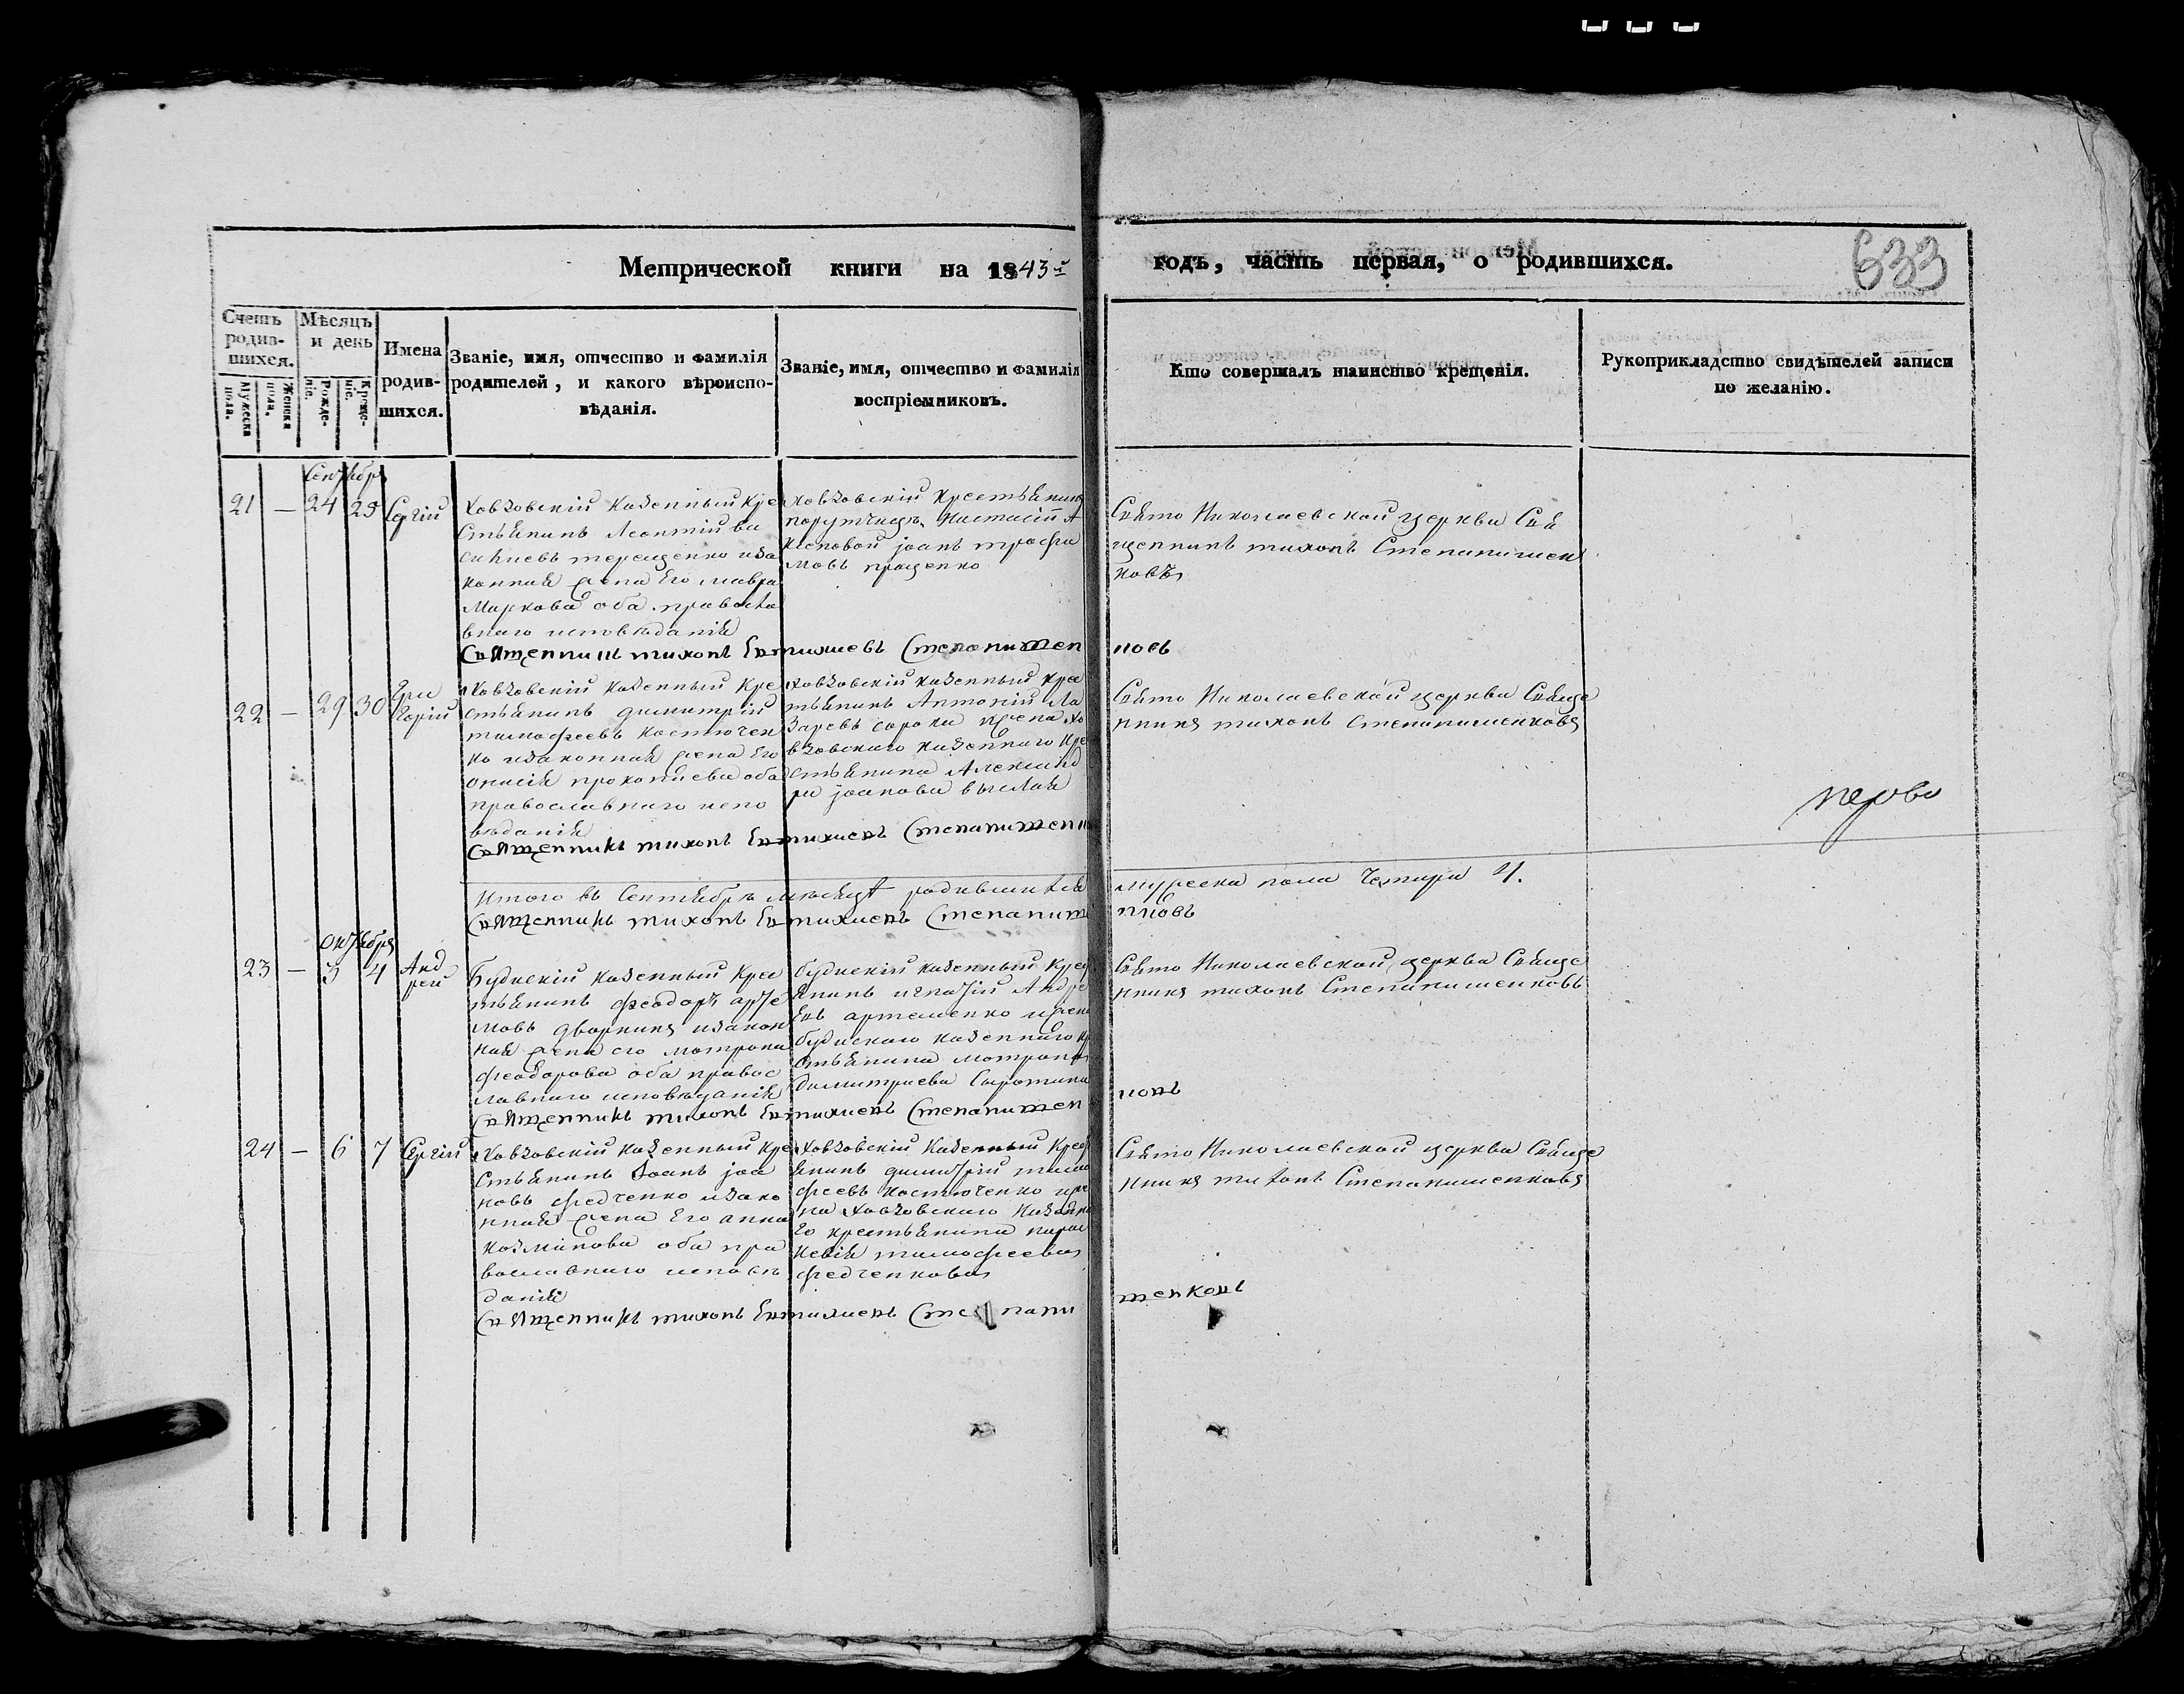 Метрической книги на 1843й годъ, часть первая, о родившихся.
633
Счетъ родив-шихся.
Мужеска пола.
Женска пола.
Мѣсяцъ и день
Рожде-ніе.
Креще-ніе.
Имена родив-шихся.
Званіе, имя, отчество и фамилія родителей, и какого вѣроиспо-вѣданія.
Званіе, имя, отчество и фамилія воспріемниковъ.
Кто совершалъ таинство крещенія.
Рукоприкладство свидѣтелей записи по желанію.
Сентябр
21 — 24 25 Сергій
казенный кре
стьянинъ Леонтій Ва
терещенко иза
конная жена Его мавра
Маркова оба правосла
внаго исповѣданія
крестьянинъ
Іоанъ трофи
мовъ проценко
Свято Николаевской церкви Свя
щенникъ тихонъ Степанишен
ковъ
Священникъ тихонъ Евтихиевъ Степанишен ковъ
22 — 29 30 Гри
горій
казенный кре
стьянинъ димитрій
тимофеевъ костючен
ко изаконная жена Его
онисія прокопиева оба
православнаго испо
вѣданія
казенный крес
тьянинъ Антоній Ла
заревъ сорока
казеннаго кре
стьянина Александ
ра Іоанова
Свято Николаевской церкви Свяще
нникъ тихонъ Степанишенковъ
Священникъ тихонъ Евтихиевъ Степанишен
Итого въ Сентябрѣ мѣсяцѣ родившихся мужеска пола Четыри 4.
Священникъ тихонъ Евтихиевъ Степаниш
Октября
23 — 3 4 Анд
рей
казенный крес
тьянинъ феодоръ арте
мовъ дворникъ изакон
ная жена его мотрона
феодорова оба правос
лавнаго исповѣданія
казенный крес
янинъ игнатій Андре
евъ артеменко
казеннаго кр
стьянина мотрона
димитриева Сыротина
Свято Николаевской церкви Свяще
нникъ тихонъ Степанишенковъ
Священникъ тихонъ Евтихиевъ Степанишен ковъ
24 — 6 7 Сергій
казенный кре
стьянинъ Іоанъ Іоа
новъ федченко изако
нная жена Его анна
козминова оба пра
вославнаго исповѣ
данія
казенный крес
янинъ димитрій тимо
феевъ костюченко
го крестьянина парас
кевія тимофеева
федченкова
Свято Николаевской церкви Свяще
нникъ тихонъ Степанишенковъ
Священникъ тихонъ Евтихиевъ Степани шенковъ